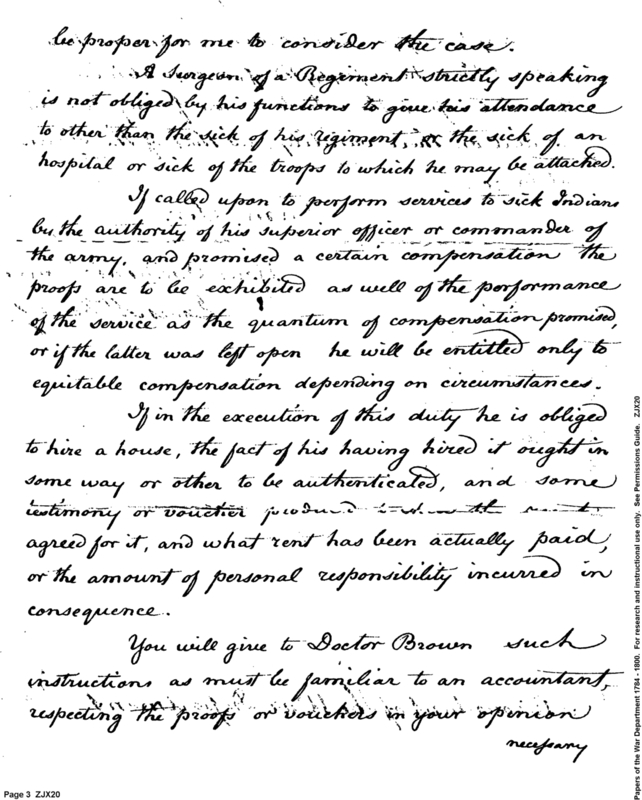 be proper for me to consider the case.
A Surgeon of a Regiment strictly speaking
is not obliged by his functions to give his attendance
to other than the sick of his regiment, or the sick of an
hospital or sick of the troops to which he may be attached.
If called upon to perform services to sick Indians
by the authority of his superior officer or commander of
the army, and promised a certain compensation the
proofs are to be exhibited as well of the performance
of the service as the quantum of compensation promised,
or if the latter was left open he will be entitled only to
equitable compensation depending on circumstances.
If in the execution of this duty he is obliged
to hire a house, the fact of his having hired it ought in
some way or other to be authenticated, and some
testimony or voucher produced the
agreed for it, and what rent has been actually paid,
or the amount of personal responsibility incurred in
consequence.
You will give to Doctor Brown such
instructions as must be familiar to an accountant,
respecting the proofs or vouchers in your opinion
necessary
Page 3 ZJX20
Papers of the War Department 1784 - 1800. For research and instructional use only. See Permissions Guide. ZJX20